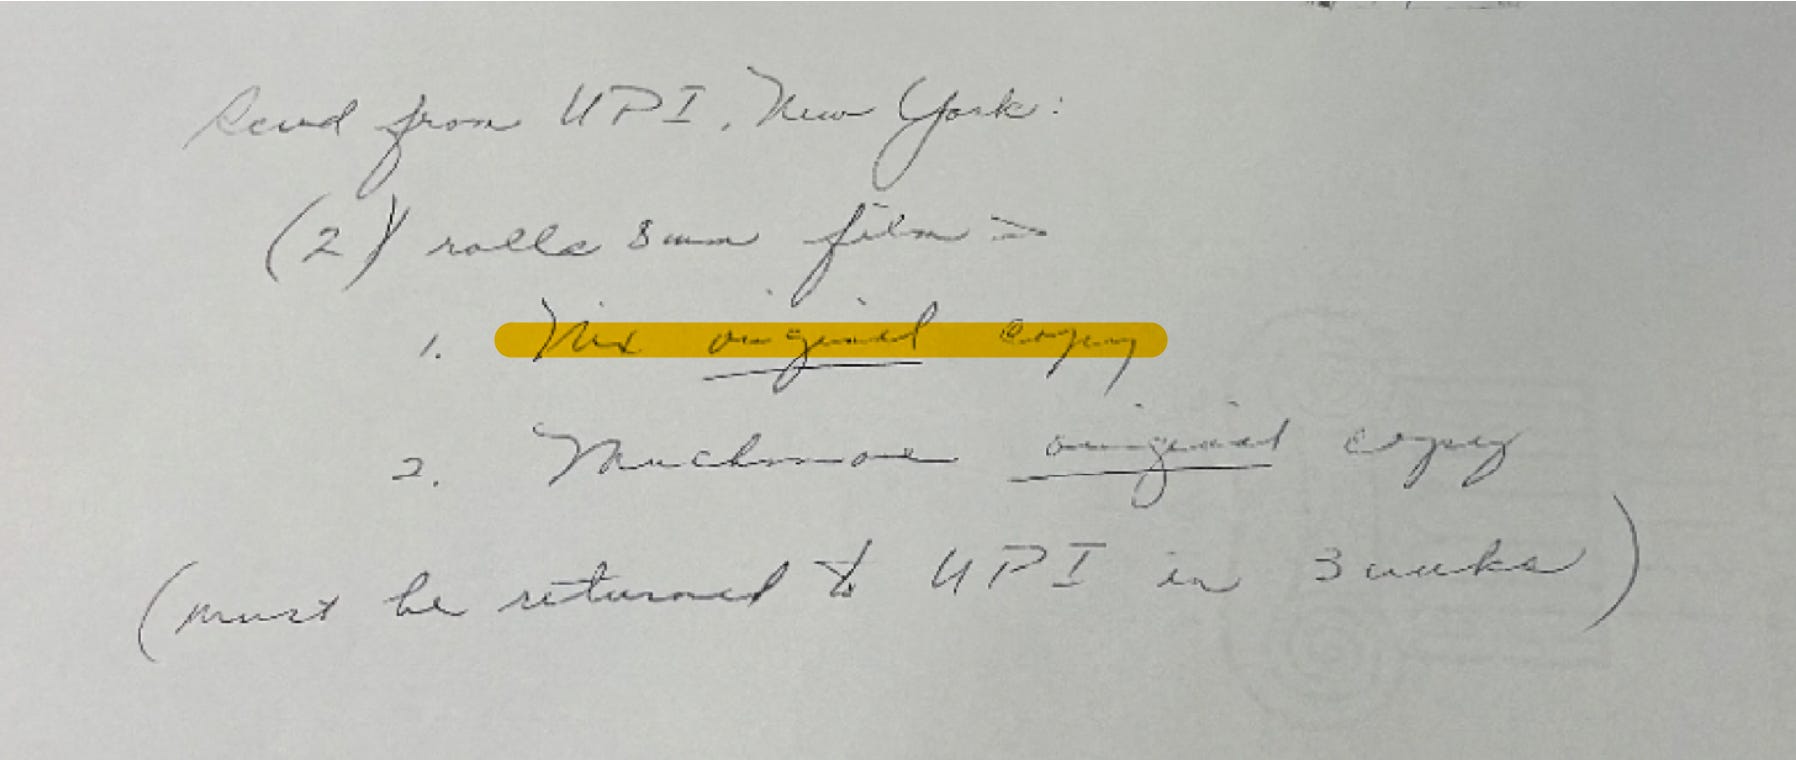 Recvd from UPI, New York:
(2) rolls 8mm film =
1. Nix original copy
2. Muchmore original copy
(must be returned to UPI in 3 weeks)